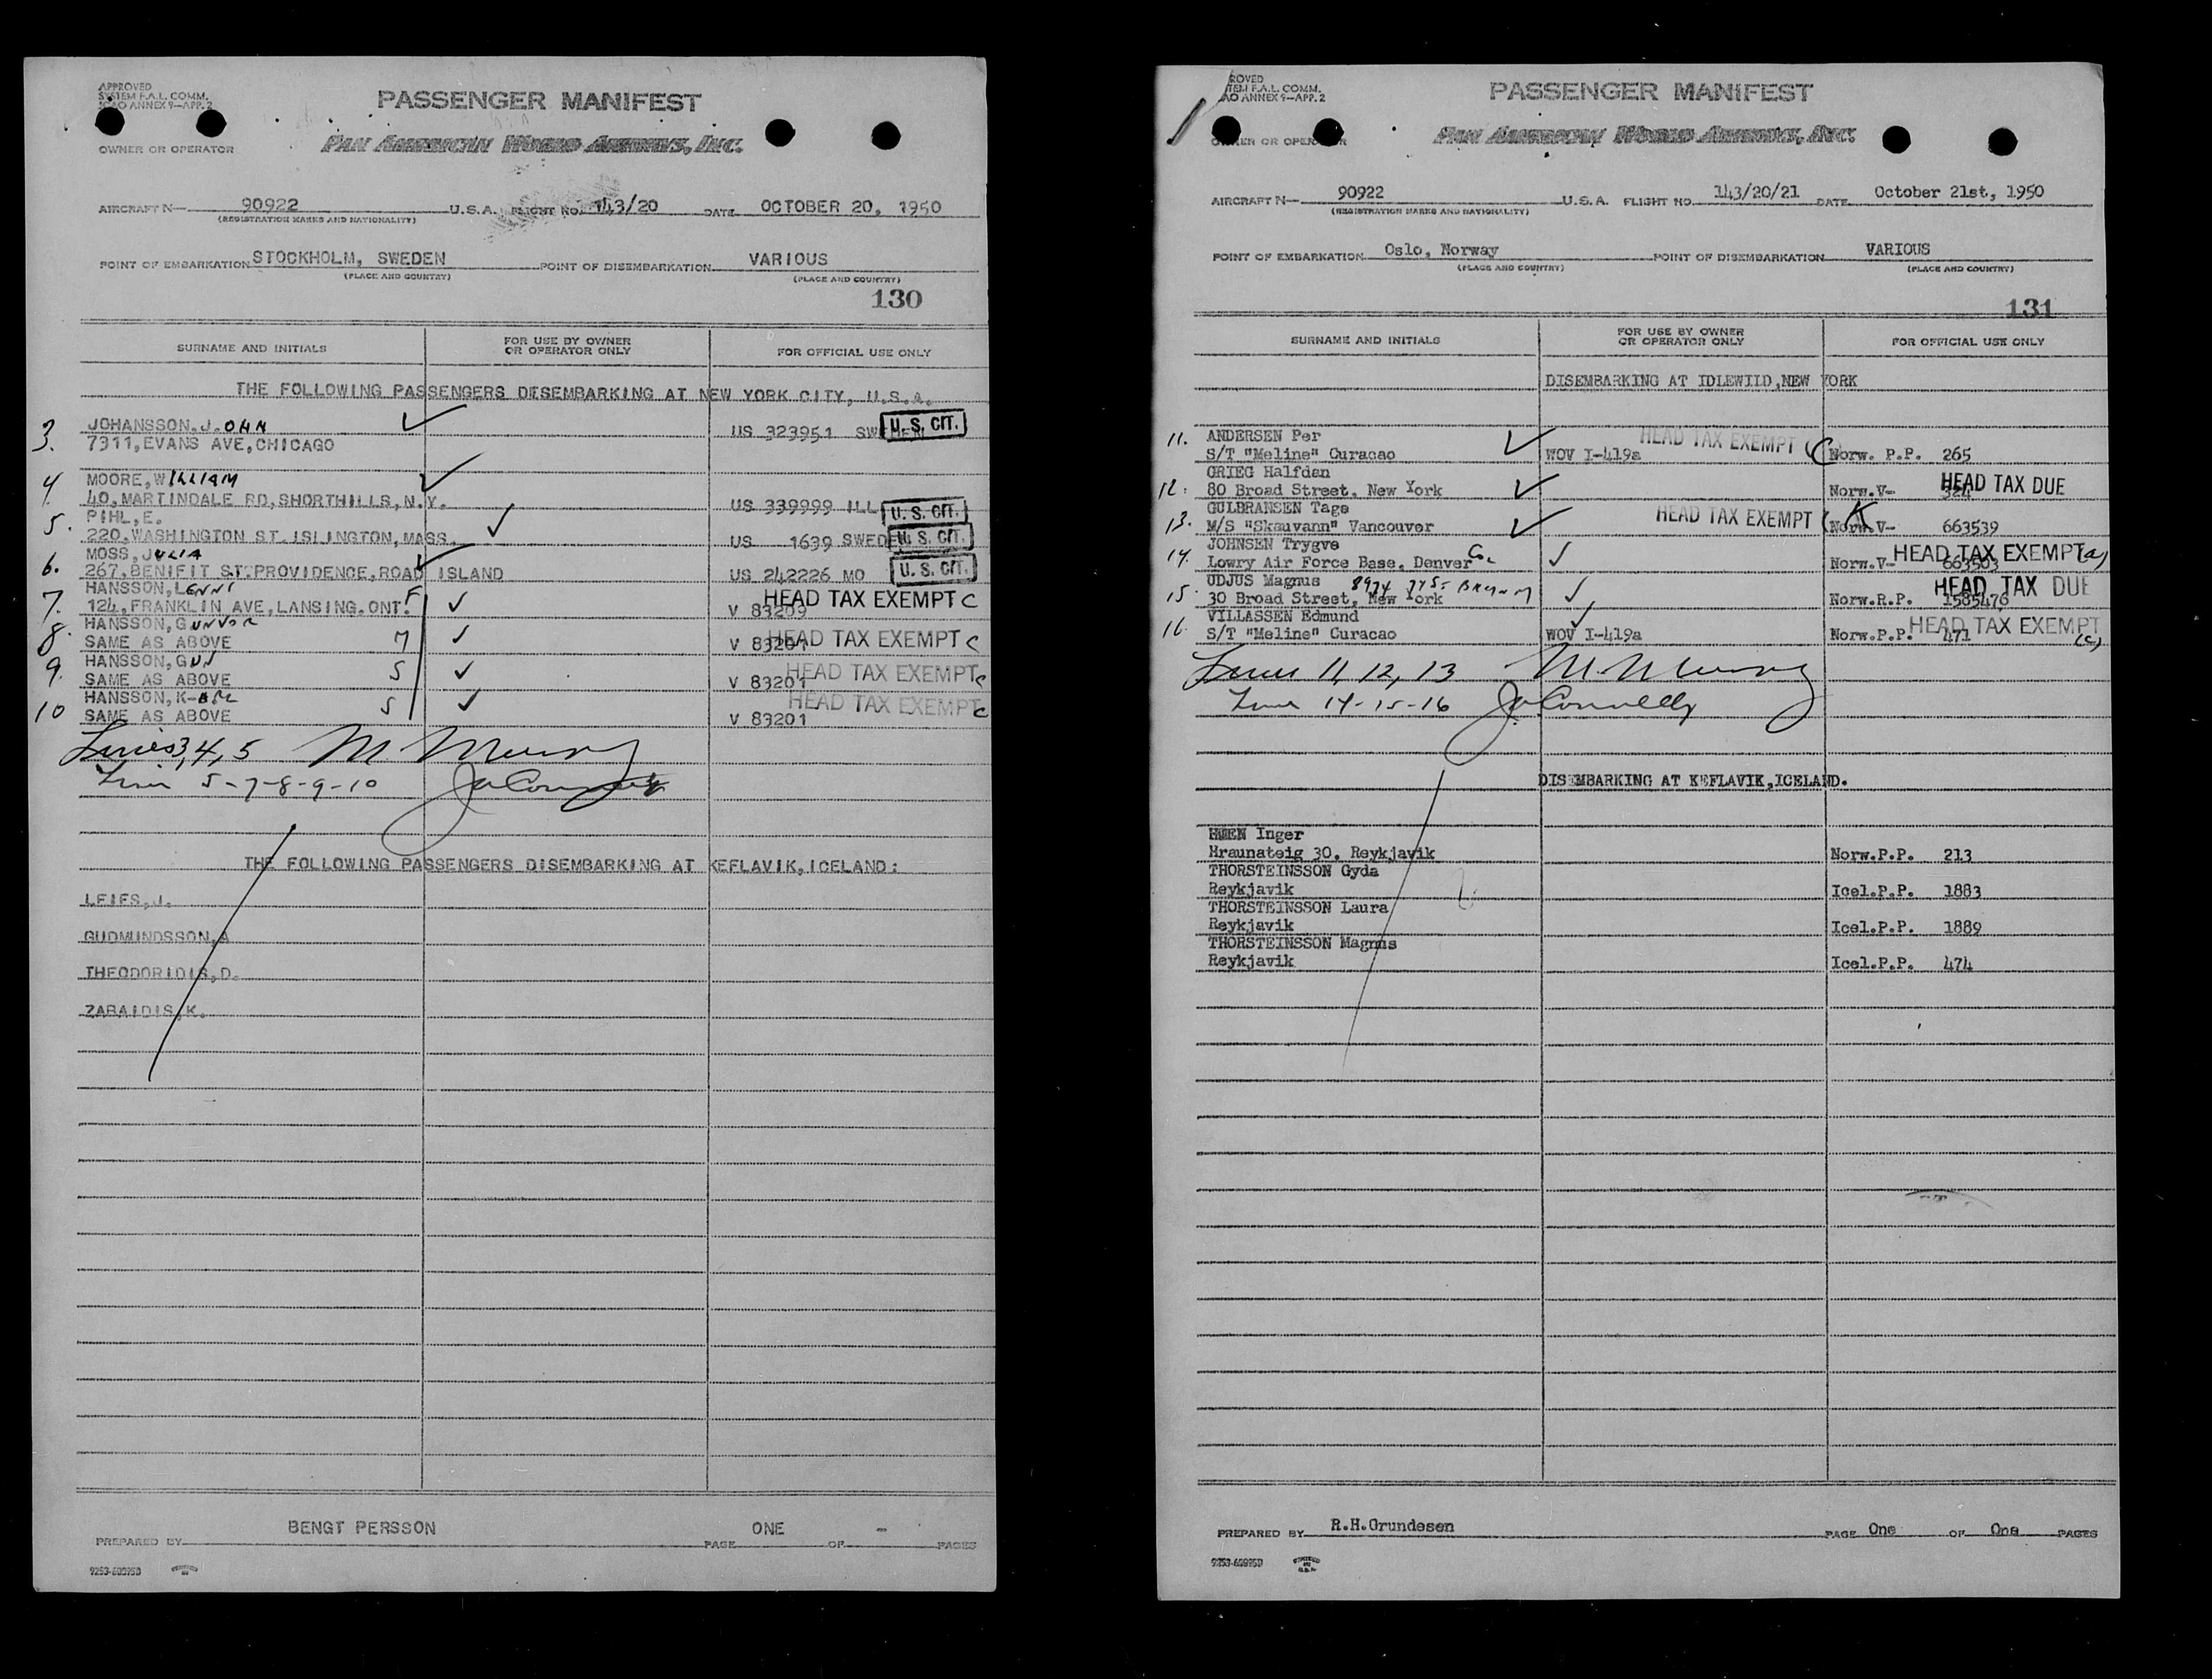 APPROVED
SYSTEM F.A.L. COMM.
ICAO ANNEX 9—APP. 2
PASSENGER MANIFEST
PAN AMERICAN WORLD AIRWAYS, INC.
OWNER OR OPERATOR
AIRCRAFT N— 90922 U.S.A. FLIGHT NO. 143/20 DATE OCTOBER 20, 1950
(REGISTRATION MARKS AND NATIONALITY)
POINT OF EMBARKATION STOCKHOLM, SWEDEN POINT OF DISEMBARKATION VARIOUS
(PLACE AND COUNTRY) (PLACE AND COUNTRY)
130
SURNAME AND INITIALS FOR USE BY OWNER OR OPERATOR ONLY FOR OFFICIAL USE ONLY
THE FOLLOWING PASSENGERS DESEMBARKING AT NEW YORK CITY, U.S.A.
3. JOHANSSON, JOHN
7311, EVANS AVE, CHICAGO US 323951 SWEDEN U. S. CIT.
4 MOORE, WILLIAM
40, MARTINDALE RD, SHORTHILLS, N.Y. US 339999 ILL U. S. CIT.
5. PIHL, E.
220, WASHINGTON ST. ISLINGTON, MASS. US 1639 SWEDEN U. S. CIT.
6. MOSS, JULIA
267, BENIFIT ST. PROVIDENCE, ROAD ISLAND US 242226 MO U. S. CIT.
7. HANSSON, LENNI
124, FRANKLIN AVE, LANSING. ONT. F V 83209 HEAD TAX EXEMPT C
8. HANSSON, GUNVOR
SAME AS ABOVE M V 83201 HEAD TAX EXEMPT C
9. HANSSON, GUN
SAME AS ABOVE S V 83201 HEAD TAX EXEMPT C
10 HANSSON, K-
SAME AS ABOVE S V 83201 HEAD TAX EXEMPT C
Lines 3, 4, 5 M Murray
Line 5-7-8-9-10
THE FOLLOWING PASSENGERS DISEMBARKING AT KEFLAVIK, ICELAND:
LEIFS, J.
GUDMUNDSSON, A
THEODORIDIS, D.
ZABAIDIS, K.
PREPARED BY BENGT PERSSON PAGE ONE OF - PAGES
9253-600950
ROVED
TEM F.A.L. COMM.
AO ANNEX 9—APP. 2
PASSENGER MANIFEST
PAN AMERICAN WORLD AIRWAYS, INC.
OWNER OR OPERATOR
AIRCRAFT N— 90922 U.S.A. FLIGHT NO. 143/20/21 DATE October 21st, 1950
(REGISTRATION MARKS AND NATIONALITY)
POINT OF EMBARKATION Oslo, Norway POINT OF DISEMBARKATION VARIOUS
(PLACE AND COUNTRY) (PLACE AND COUNTRY)
131
SURNAME AND INITIALS FOR USE BY OWNER OR OPERATOR ONLY FOR OFFICIAL USE ONLY
DISEMBARKING AT IDLEWILD, NEW YORK
11. ANDERSEN Per HEAD TAX EXEMPT C
S/T "Meline" Curacao WOV I-419a Norw. P.P. 265
12. GRIEG Halfdan HEAD TAX DUE
80 Broad Street, New York Norw.V- 324
13. GULBRANSEN Tage HEAD TAX EXEMPT K
M/S "Skauvann" Vancouver Norw.V- 663539
14. JOHNSEN Trygve HEAD TAX EXEMPT (a)
Lowry Air Force Base, Denver Co. Norw.V- 663503
15. UDJUS Magnus HEAD TAX DUE
30 Broad Street, New York Norw.R.P. 1585476
16. VILLASSEN Edmund HEAD TAX EXEMPT
S/T "Meline" Curacao WOV I-419a Norw.P.P. 471 (c)
Lines 11, 12, 13 M. Murray
Line 14-15-16 Connelly
DISEMBARKING AT KEFLAVIK, ICELAND.
Inger
Hraunateig 30, Reykjavik Norw.P.P. 213
THORSTEINSSON Gyda
Reykjavik Icel.P.P. 1883
THORSTEINSSON Laura
Reykjavik Icel.P.P. 1889
THORSTEINSSON Magnus
Reykjavik Icel.P.P. 474
PREPARED BY R.H.Grundesen PAGE One OF One PAGES
9253-600950